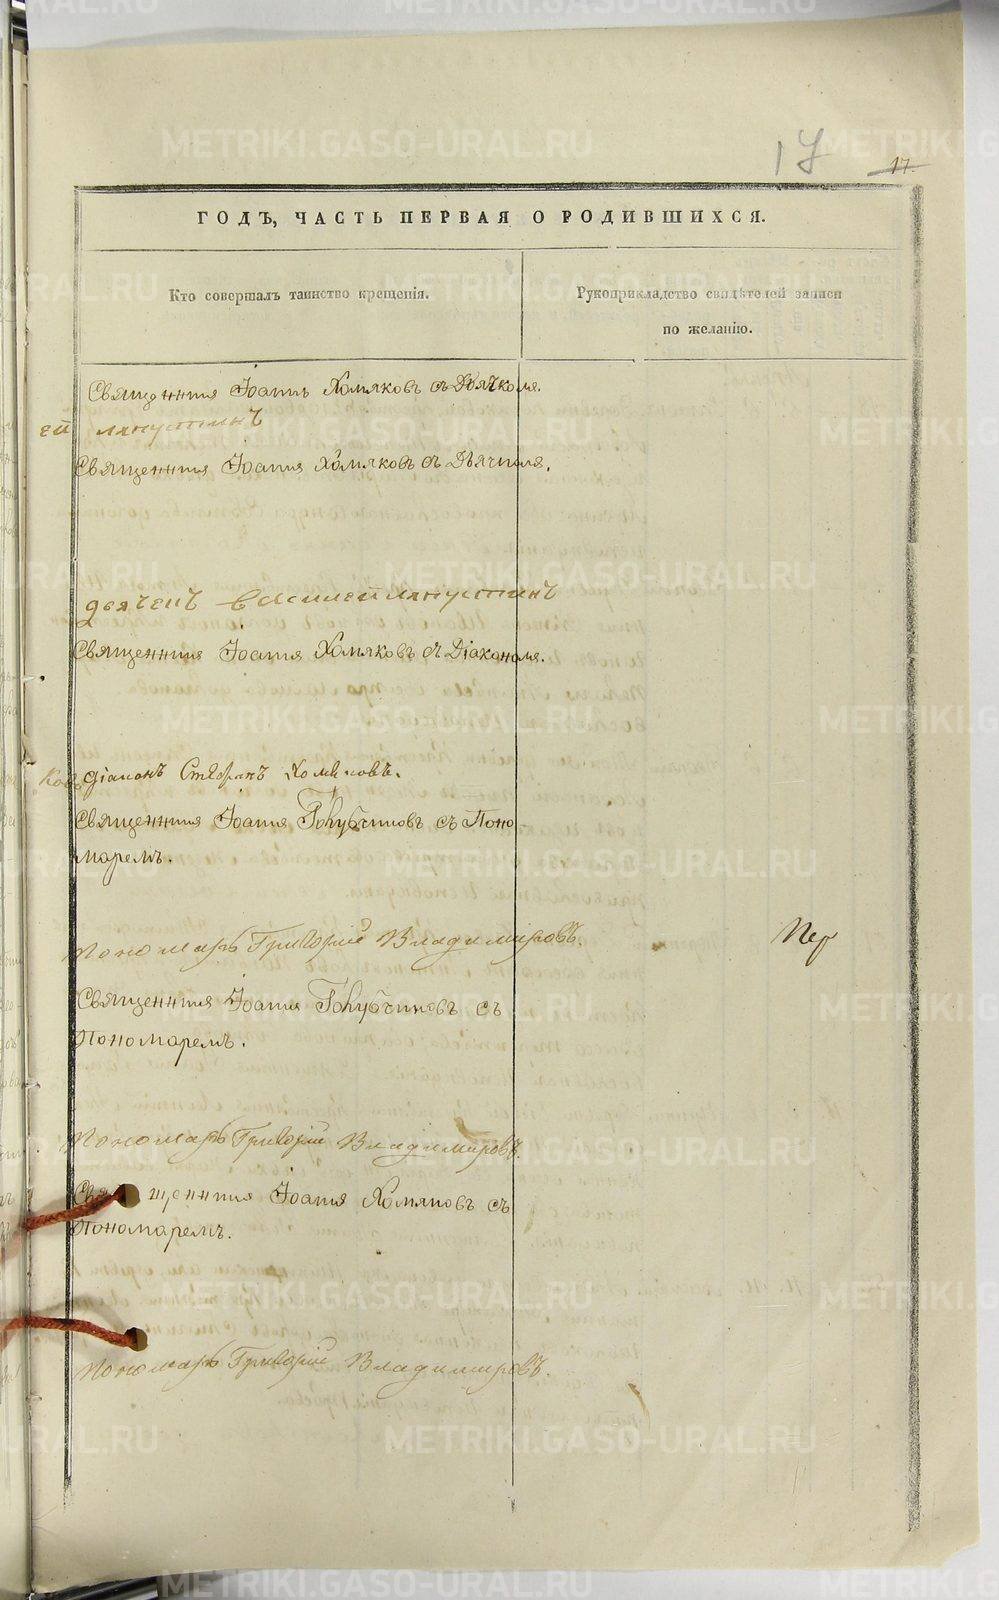 17
17.
ГОДЪ, ЧАСТЬ ПЕРВАЯ О РОДИВШИХСЯ.
Кто совершалъ таинство крещенія.
Рукоприкладство свидѣтелей записи
по желанію.
Священникъ Іоаннъ Хомяковъ съ Дьячкомъ.
ей Ляпустинъ
Священникъ Іоаннъ Хомяковъ съ Дьячкомъ.
дьячекъ Василей Ляпустинъ
Священникъ Іоаннъ Хомяковъ съ Діакономъ.
ковъ
діаконъ Стефанъ Хомяковъ.
Священникъ Іоаннъ Голубчиковъ съ Поно
маремъ.
Пономарь Григорій Владимировъ.
Пер
Священникъ Іоаннъ Голубчиковъ съ
Пономаремъ.
Пономарь Григорій Владимировъ.
Священникъ Іоаннъ Хомяковъ съ
Пономаремъ.
Пономарь Григорій Владимировъ.
METRIKI.GASO-URAL.RU